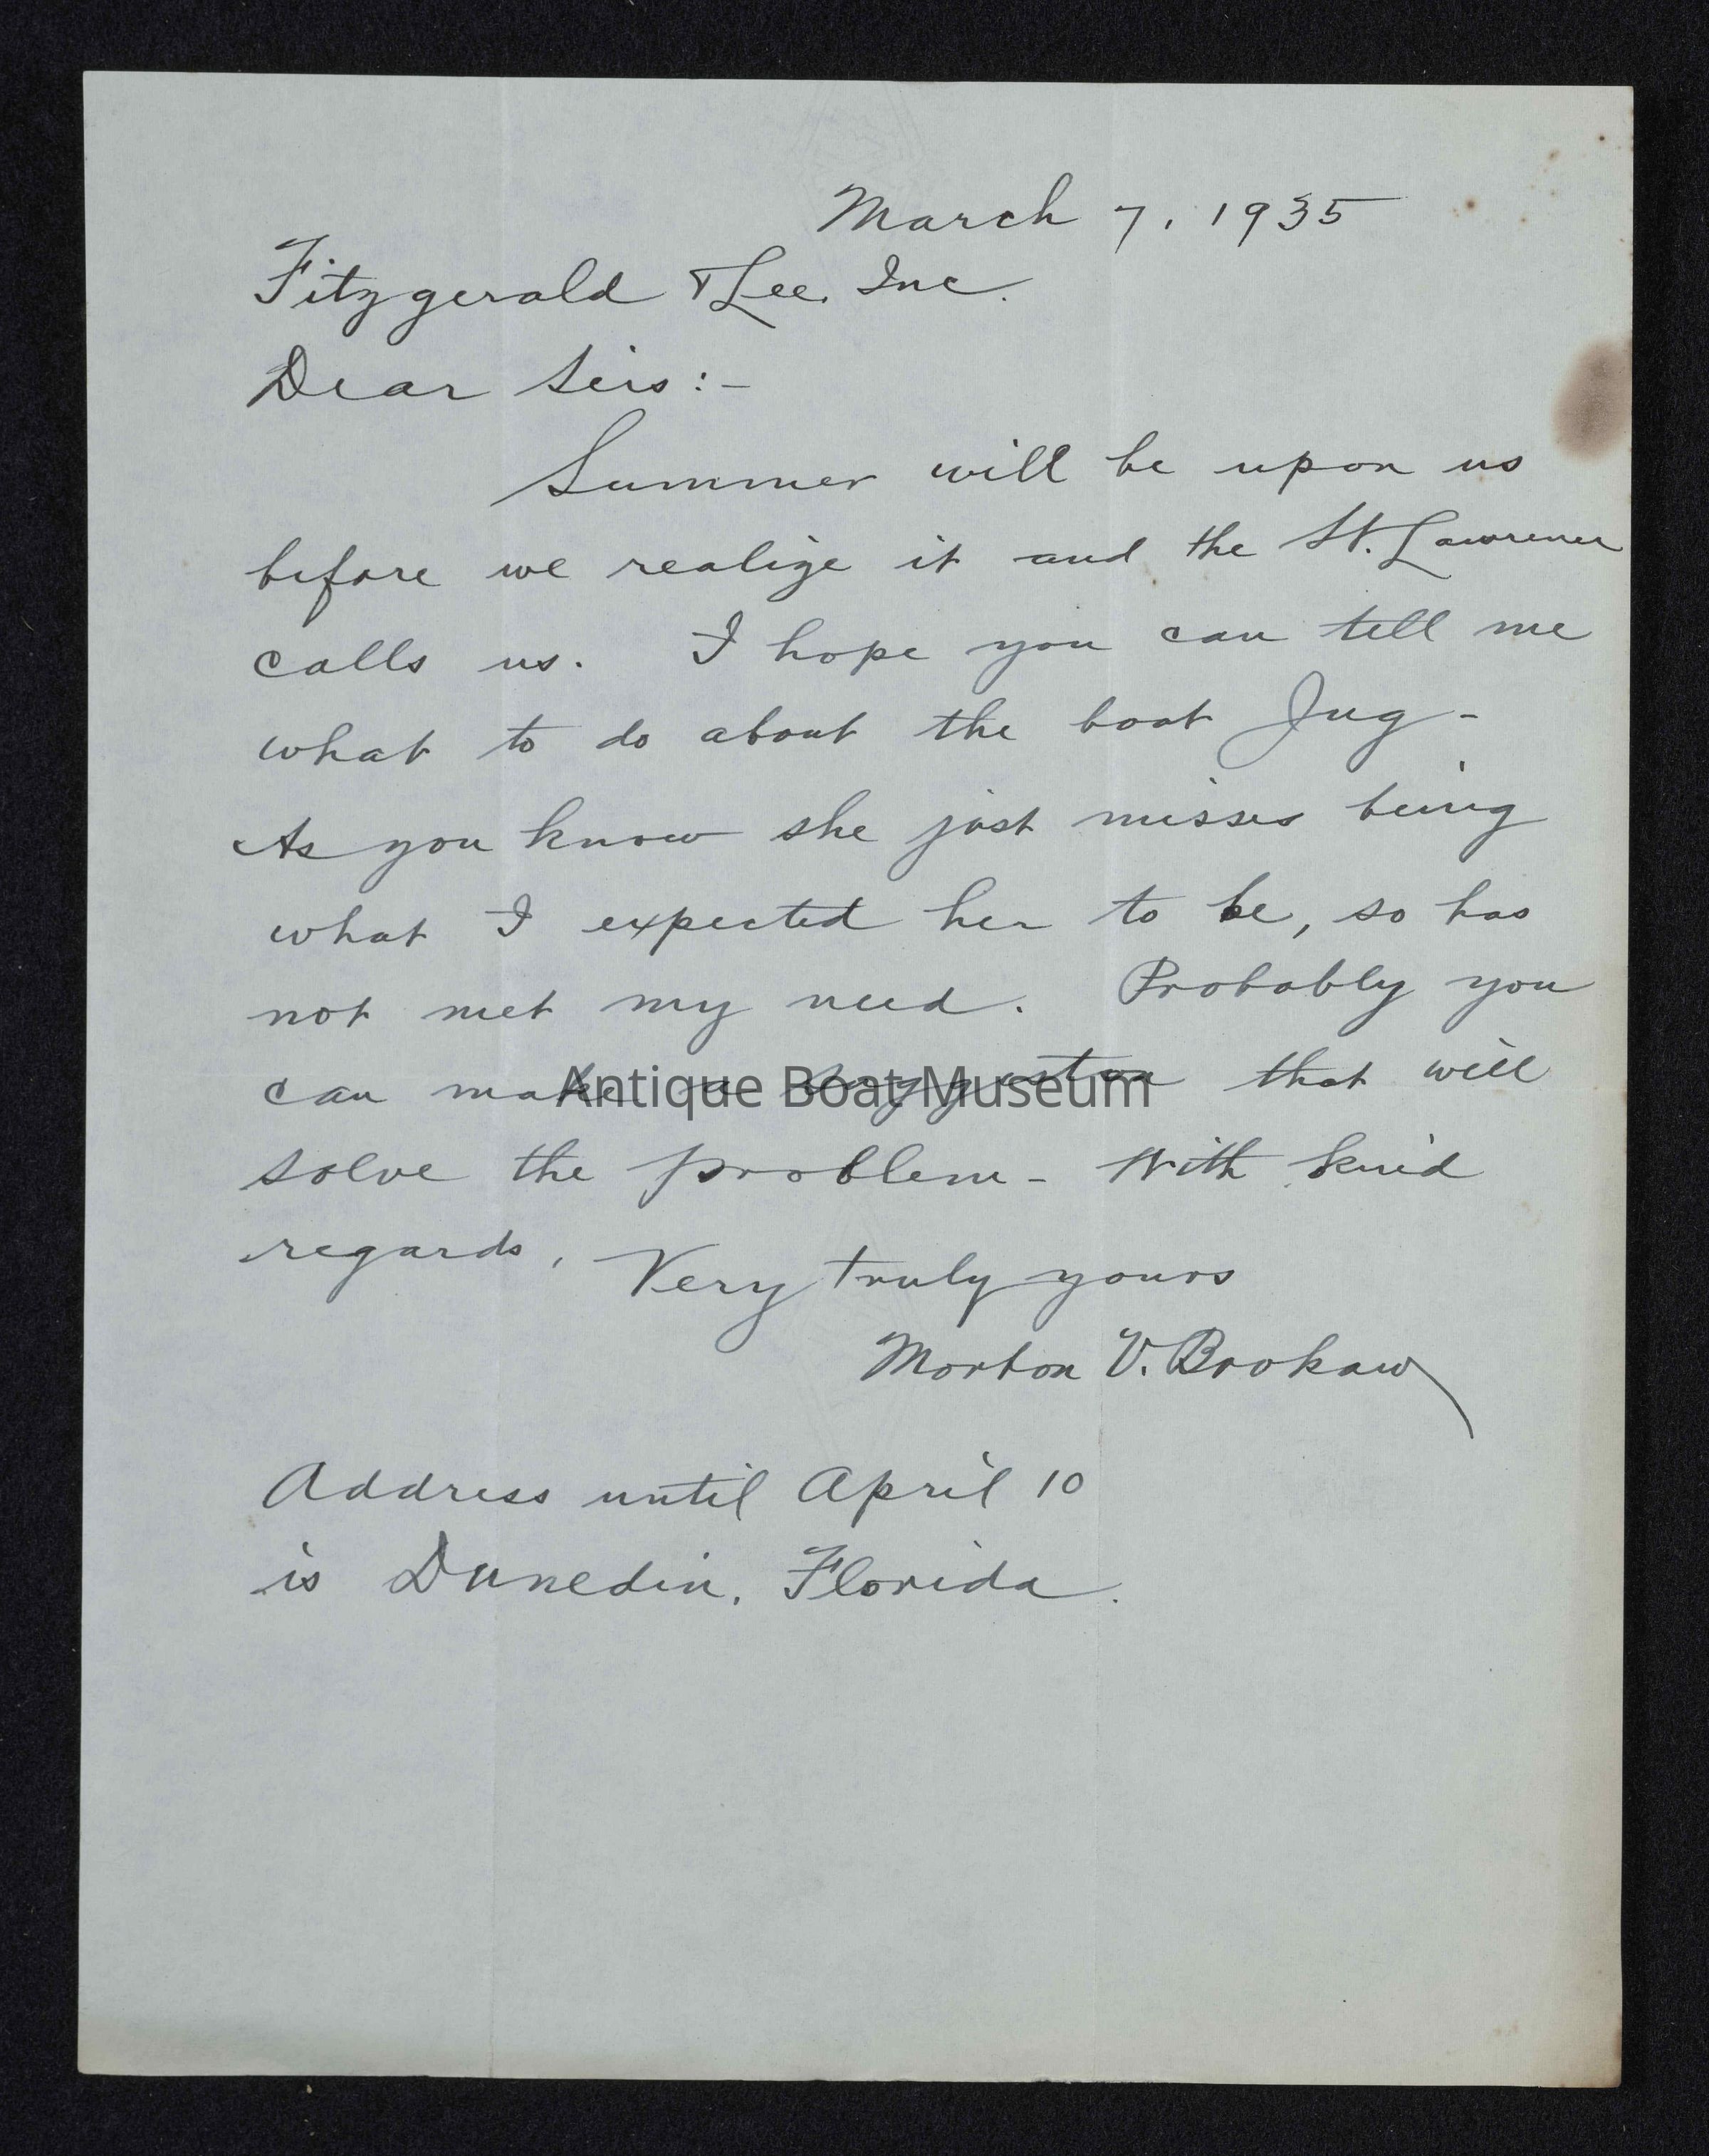 March 7, 1935
Fitzgerald & Lee, Inc.
Dear Sirs:-
Summer will be upon us
before we realize it and the St. Lawrence
calls us. I hope you can tell me
what to do about the boat Jug-
As you know she just misses being
what I expected her to be, so has
not met my need. Probably you
can make a suggestion that will
Antique Boat Museum
solve the problem - With kind
regards, Very truly yours
Morton V. Brokaw
Address until April 10
is Dunedin, Florida.